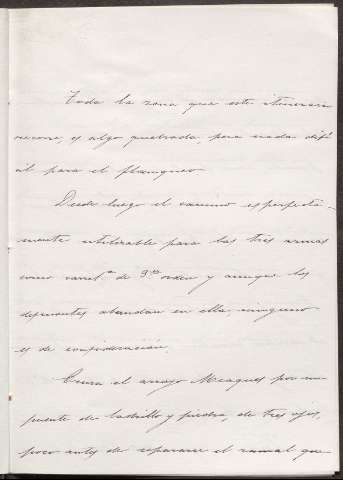 Toda la zona que este itinerario
recorre, es algo quebrada, pero nada difí
cil para el flanqueo.
Desde luego el camino es perfecta-
mente utilizable para las tres armas
como carret.ª de 3.er orden y aunque los
desmontes abundan en ella, ninguno
es de consideración.
Cruza el arroyo Meaques por un
puente de ladrillo y piedra, de tres ojos,
poco antes de separarse el ramal que